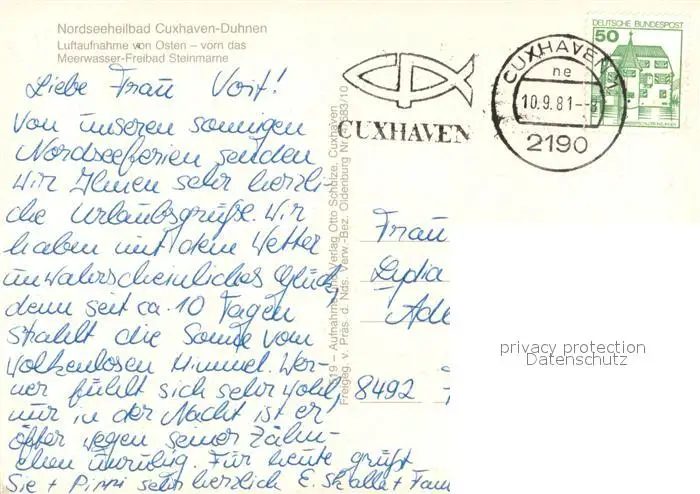 Nordseeheilbad Cuxhaven-Duhnen
Luftaufnahme von Osten – vorn das
Meerwasser-Freibad Steinmarne
Liebe Frau Voit!
Von unseren sonnigen
Nordseeferien senden
wir Ihnen sehr herzli-
che Urlaubsgrüße. Wir
haben mit dem Wetter
unwahrscheinliches Glück,
denn seit ca. 10 Tagen
strahlt die Sonne vom
wolkenlosen Himmel. Wer-
ner fühlt sich sehr wohl,
nur in der Nacht ist er
öfter wegen seiner Zähn-
chen unruhig. Für heute grüßt
Sie + Pippi sehr herzlich E. + Fam
Aufnahme und Verlag Otto Schulze, Cuxhaven
Freigeg. v. Präs. d. Nds. Verw.-Bez. Oldenburg Nr.
CUXHAVEN
CUXHAVEN
ne
10.9.81
2190
DEUTSCHE BUNDESPOST
50
Frau
Lydia
8492
privacy protection
Datenschutz